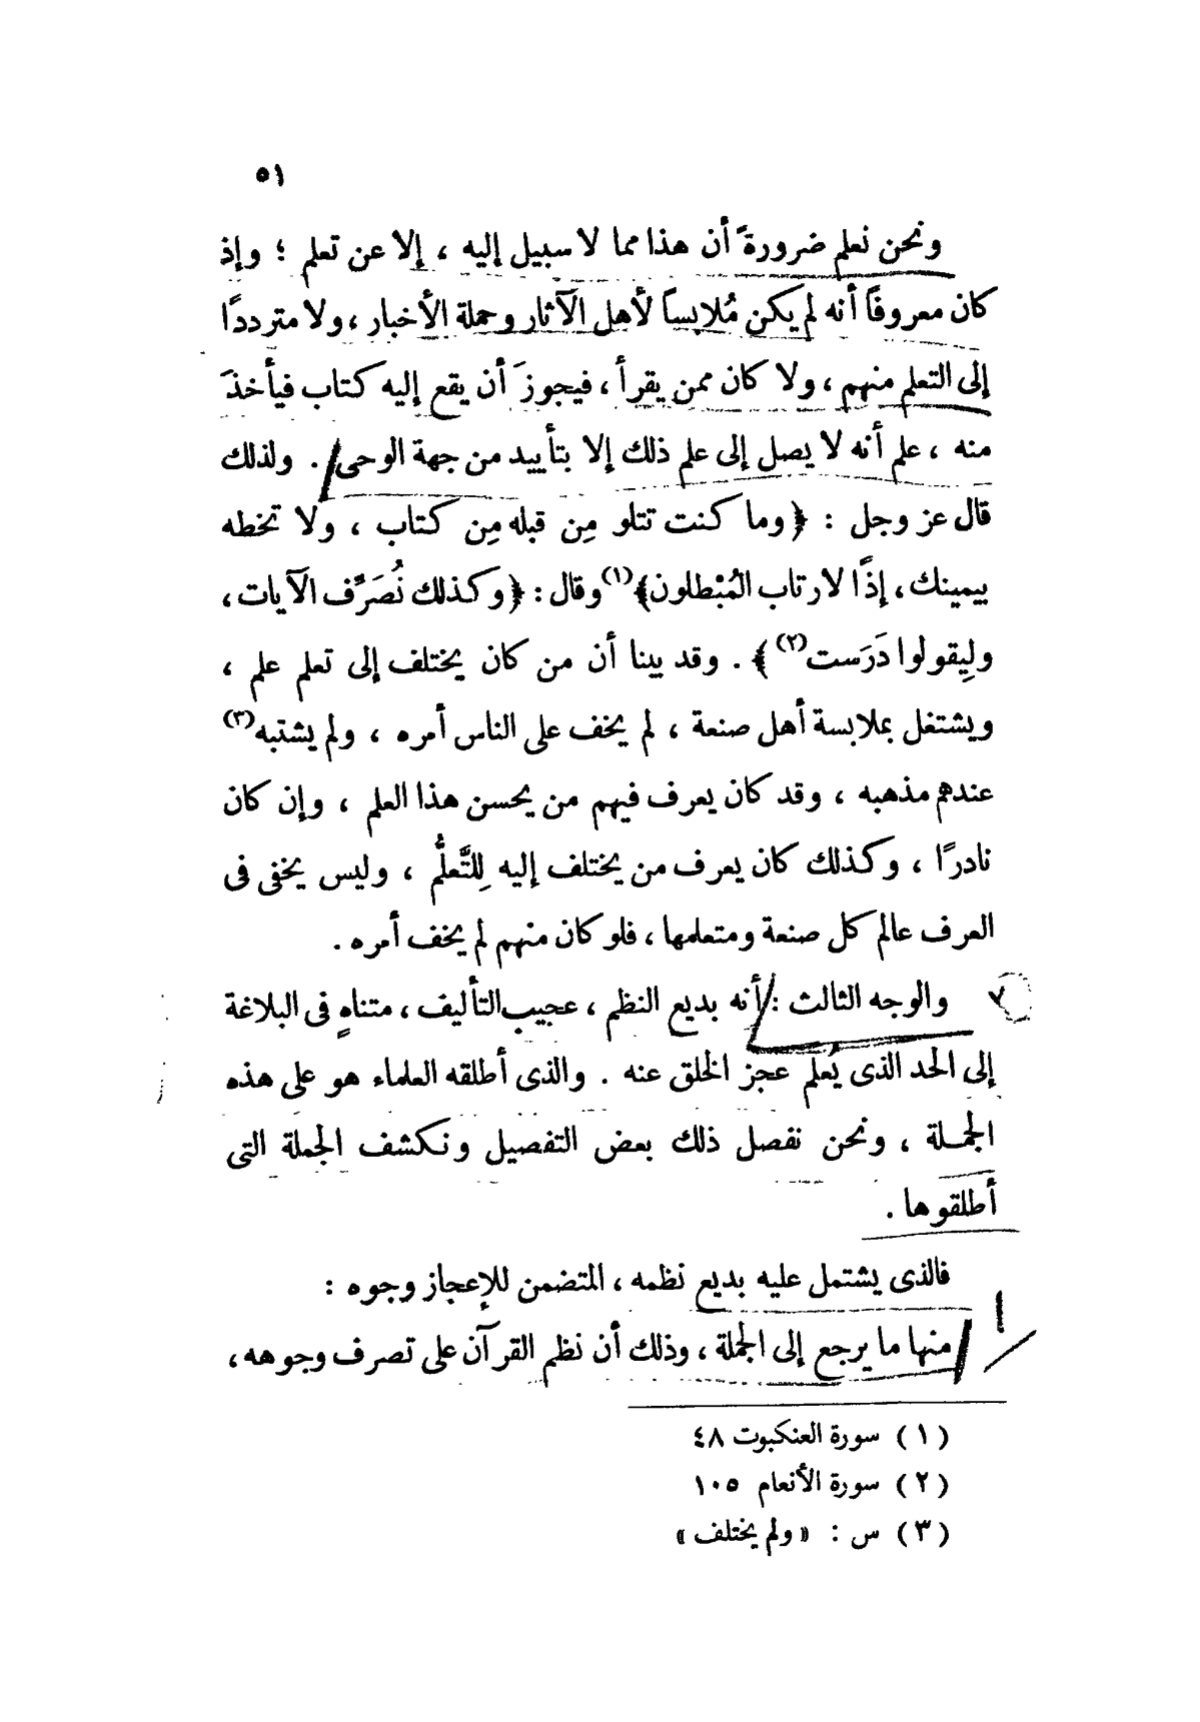 ٥١
ونحن نعلم ضرورةً أن هذا مما لا سبيل إليه ، إلا عن تعلم ؛ وإذ
كان معروفاً أنه لم يكن مُلابساً لأهل الآثار وحملة الأخبار ، ولا مترددًا
إلى التعلم منهم ، ولا كان ممن يقرأ ، فيجوزَ أن يقع إليه كتاب فيأخذَ
منه ، علم أنه لا يصل إلى علم ذلك إلا بتأييد من جهة الوحى . ولذلك
قال عز وجل : ﴿ وما كنت تتلو مِن قبله مِن كتاب ، ولا تخطه
بيمينك ، إذًا لارتاب المُبْطلون﴾(١) وقال : ﴿ وكذلك نُصَرِّف الآيات ،
ولِيقولوا دَرَست(٢) ﴾ . وقد بينا أن من كان يختلف إلى تعلم علم ،
ويشتغل بملابسة أهل صنعة ، لم يخف على الناس أمره ، ولم يشتبه(٣)
عندهم مذهبه ، وقد كان يعرف فيهم من يحسن هذا العلم ، وإن كان
نادرًا ، وكذلك كان يعرف من يختلف إليه لِلتَّعلُّم ، وليس يخفى فى
العرف عالم كل صنعة ومتعلمها ، فلو كان منهم لم يخف أمره .
والوجه الثالث : أنه بديع النظم ، عجيب التأليف ، متناهٍ فى البلاغة
إلى الحد الذى يُعلم عجز الخلق عنه . والذى أطلقه العلماء هو على هذه
الجملة ، ونحن نفصل ذلك بعض التفصيل ونكشف الجملة التى
أطلقوها .
فالذى يشتمل عليه بديع نظمه ، المتضمن للإعجاز وجوه :
منها ما يرجع إلى الجملة ، وذلك أن نظم القرآن على تصرف وجوهه ،
(١) سورة العنكبوت ٤٨
(٢) سورة الأنعام ١٠٥
(٣) س : « ولم يختلف »